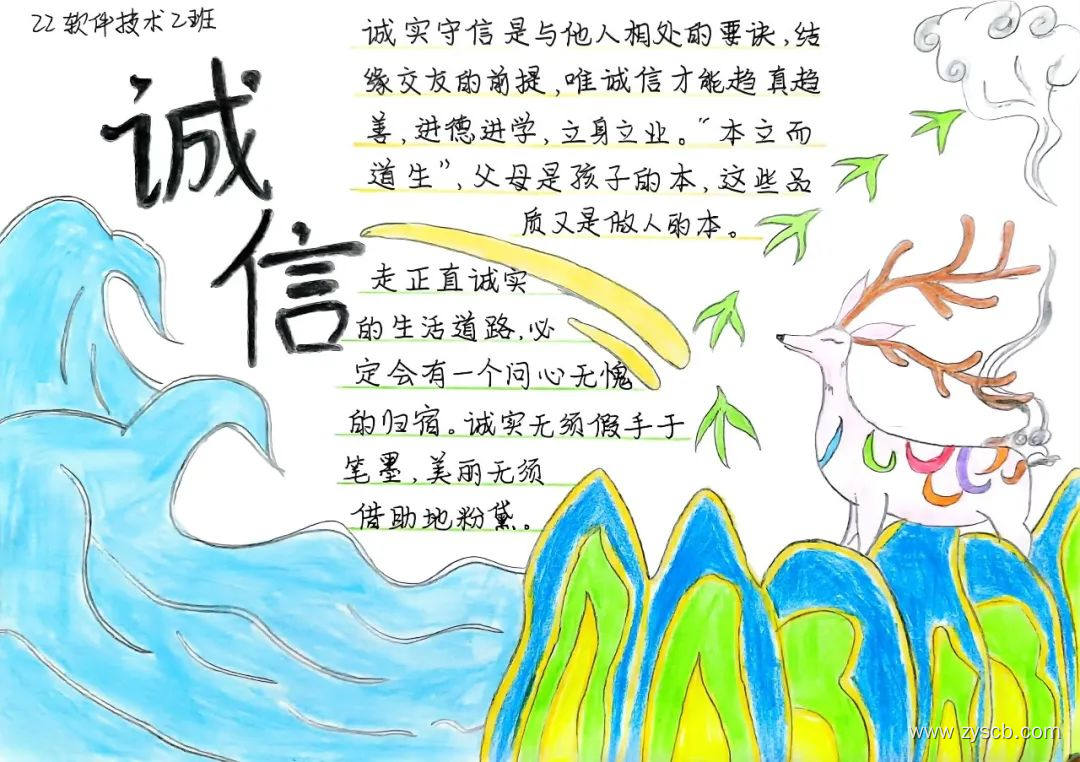 22软件技术2班
诚
信
诚实守信是与他人相处的要诀,结
缘交友的前提,唯诚信才能趋真趋
善,进德进学,立身立业。“本立而
道生”,父母是孩子的本,这些品
质又是做人的本。
走正直诚实
的生活道路,必
定会有一个问心无愧
的归宿。诚实无须假手于
笔墨,美丽无须
借助地粉黛。
www.zyscb.com